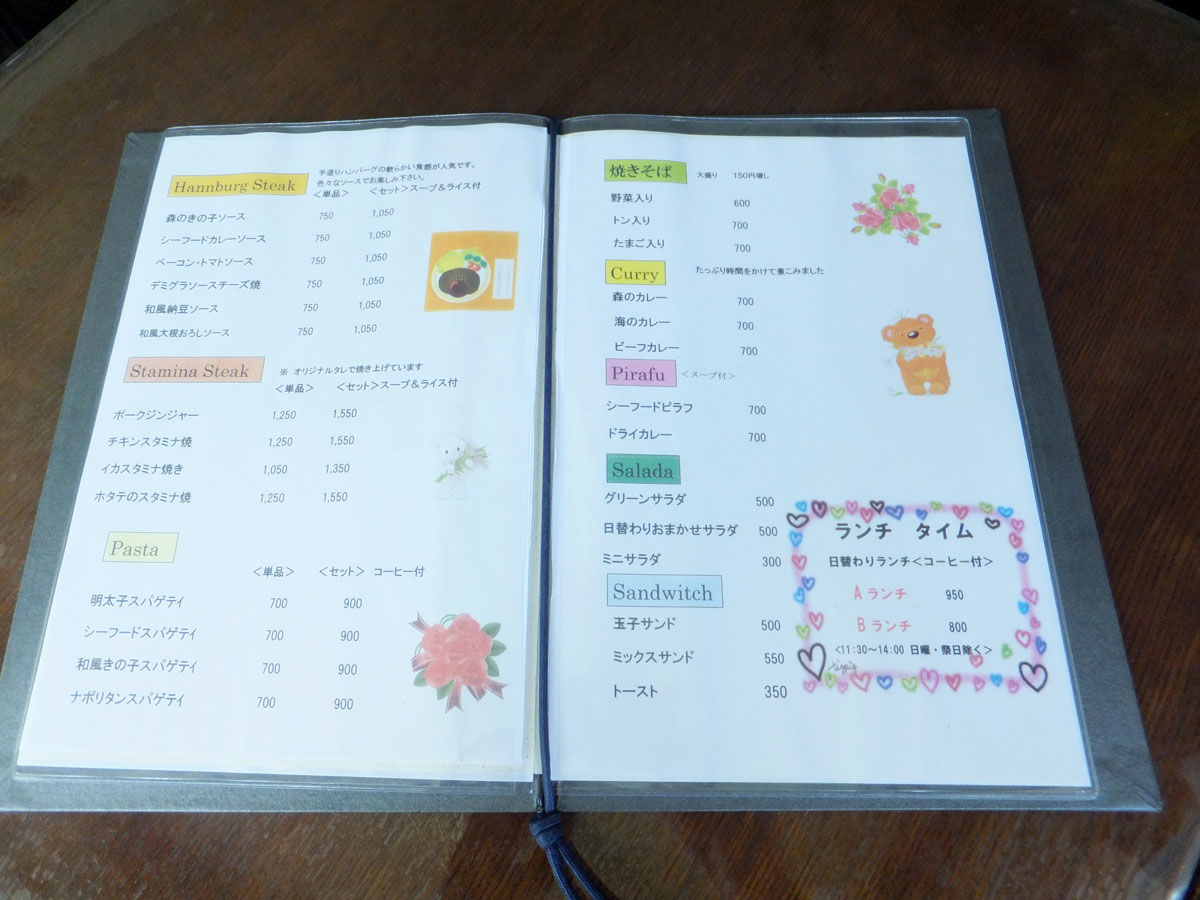 Hannburg Steak
手造りハンバーグの軟らかい食感が人気です。
色々なソースでお楽しみ下さい。
＜単品＞ ＜セット＞スープ＆ライス付
森のきの子ソース 750 1,050
シーフードカレーソース 750 1,050
ベーコン・トマトソース 750 1,050
デミグラソースチーズ焼 750 1,050
和風納豆ソース 750 1,050
和風大根おろしソース 750 1,050
Stamina Steak
※ オリジナルタレで焼き上げています
＜単品＞ ＜セット＞スープ＆ライス付
ポークジンジャー 1,250 1,550
チキンスタミナ焼 1,250 1,550
イカスタミナ焼き 1,050 1,350
ホタテのスタミナ焼 1,250 1,550
Pasta
＜単品＞ ＜セット＞ コーヒー付
明太子スパゲティ 700 900
シーフードスパゲティ 700 900
和風きの子スパゲティ 700 900
ナポリタンスパゲティ 700 900
焼きそば 大盛り 150円増し
野菜入り 600
トン入り 700
たまご入り 700
Curry たっぷり時間をかけて煮こみました
森のカレー 700
海のカレー 700
ビーフカレー 700
Pirafu ＜スープ付＞
シーフードピラフ 700
ドライカレー 700
Salada
グリーンサラダ 500
日替わりおまかせサラダ 500
ミニサラダ 300
Sandwitch
玉子サンド 500
ミックスサンド 550
トースト 350
ランチ タイム
日替わりランチ＜コーヒー付＞
A ランチ 950
B ランチ 800
<11:30～14:00 日曜・祭日除く>